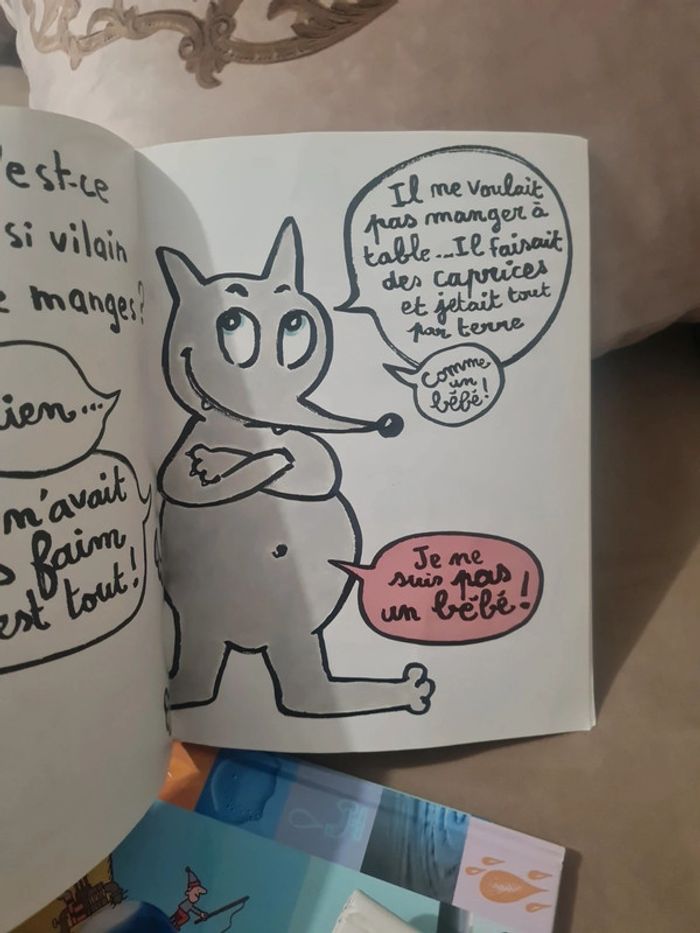 est-ce
si vilain
manges?
n'avait
faim
est tout!
Il ne voulait
pas manger à
table...Il faisait
des caprices
et jetait tout
par terre
Comme
un
bébé!
Je ne
suis pas
un bébé!